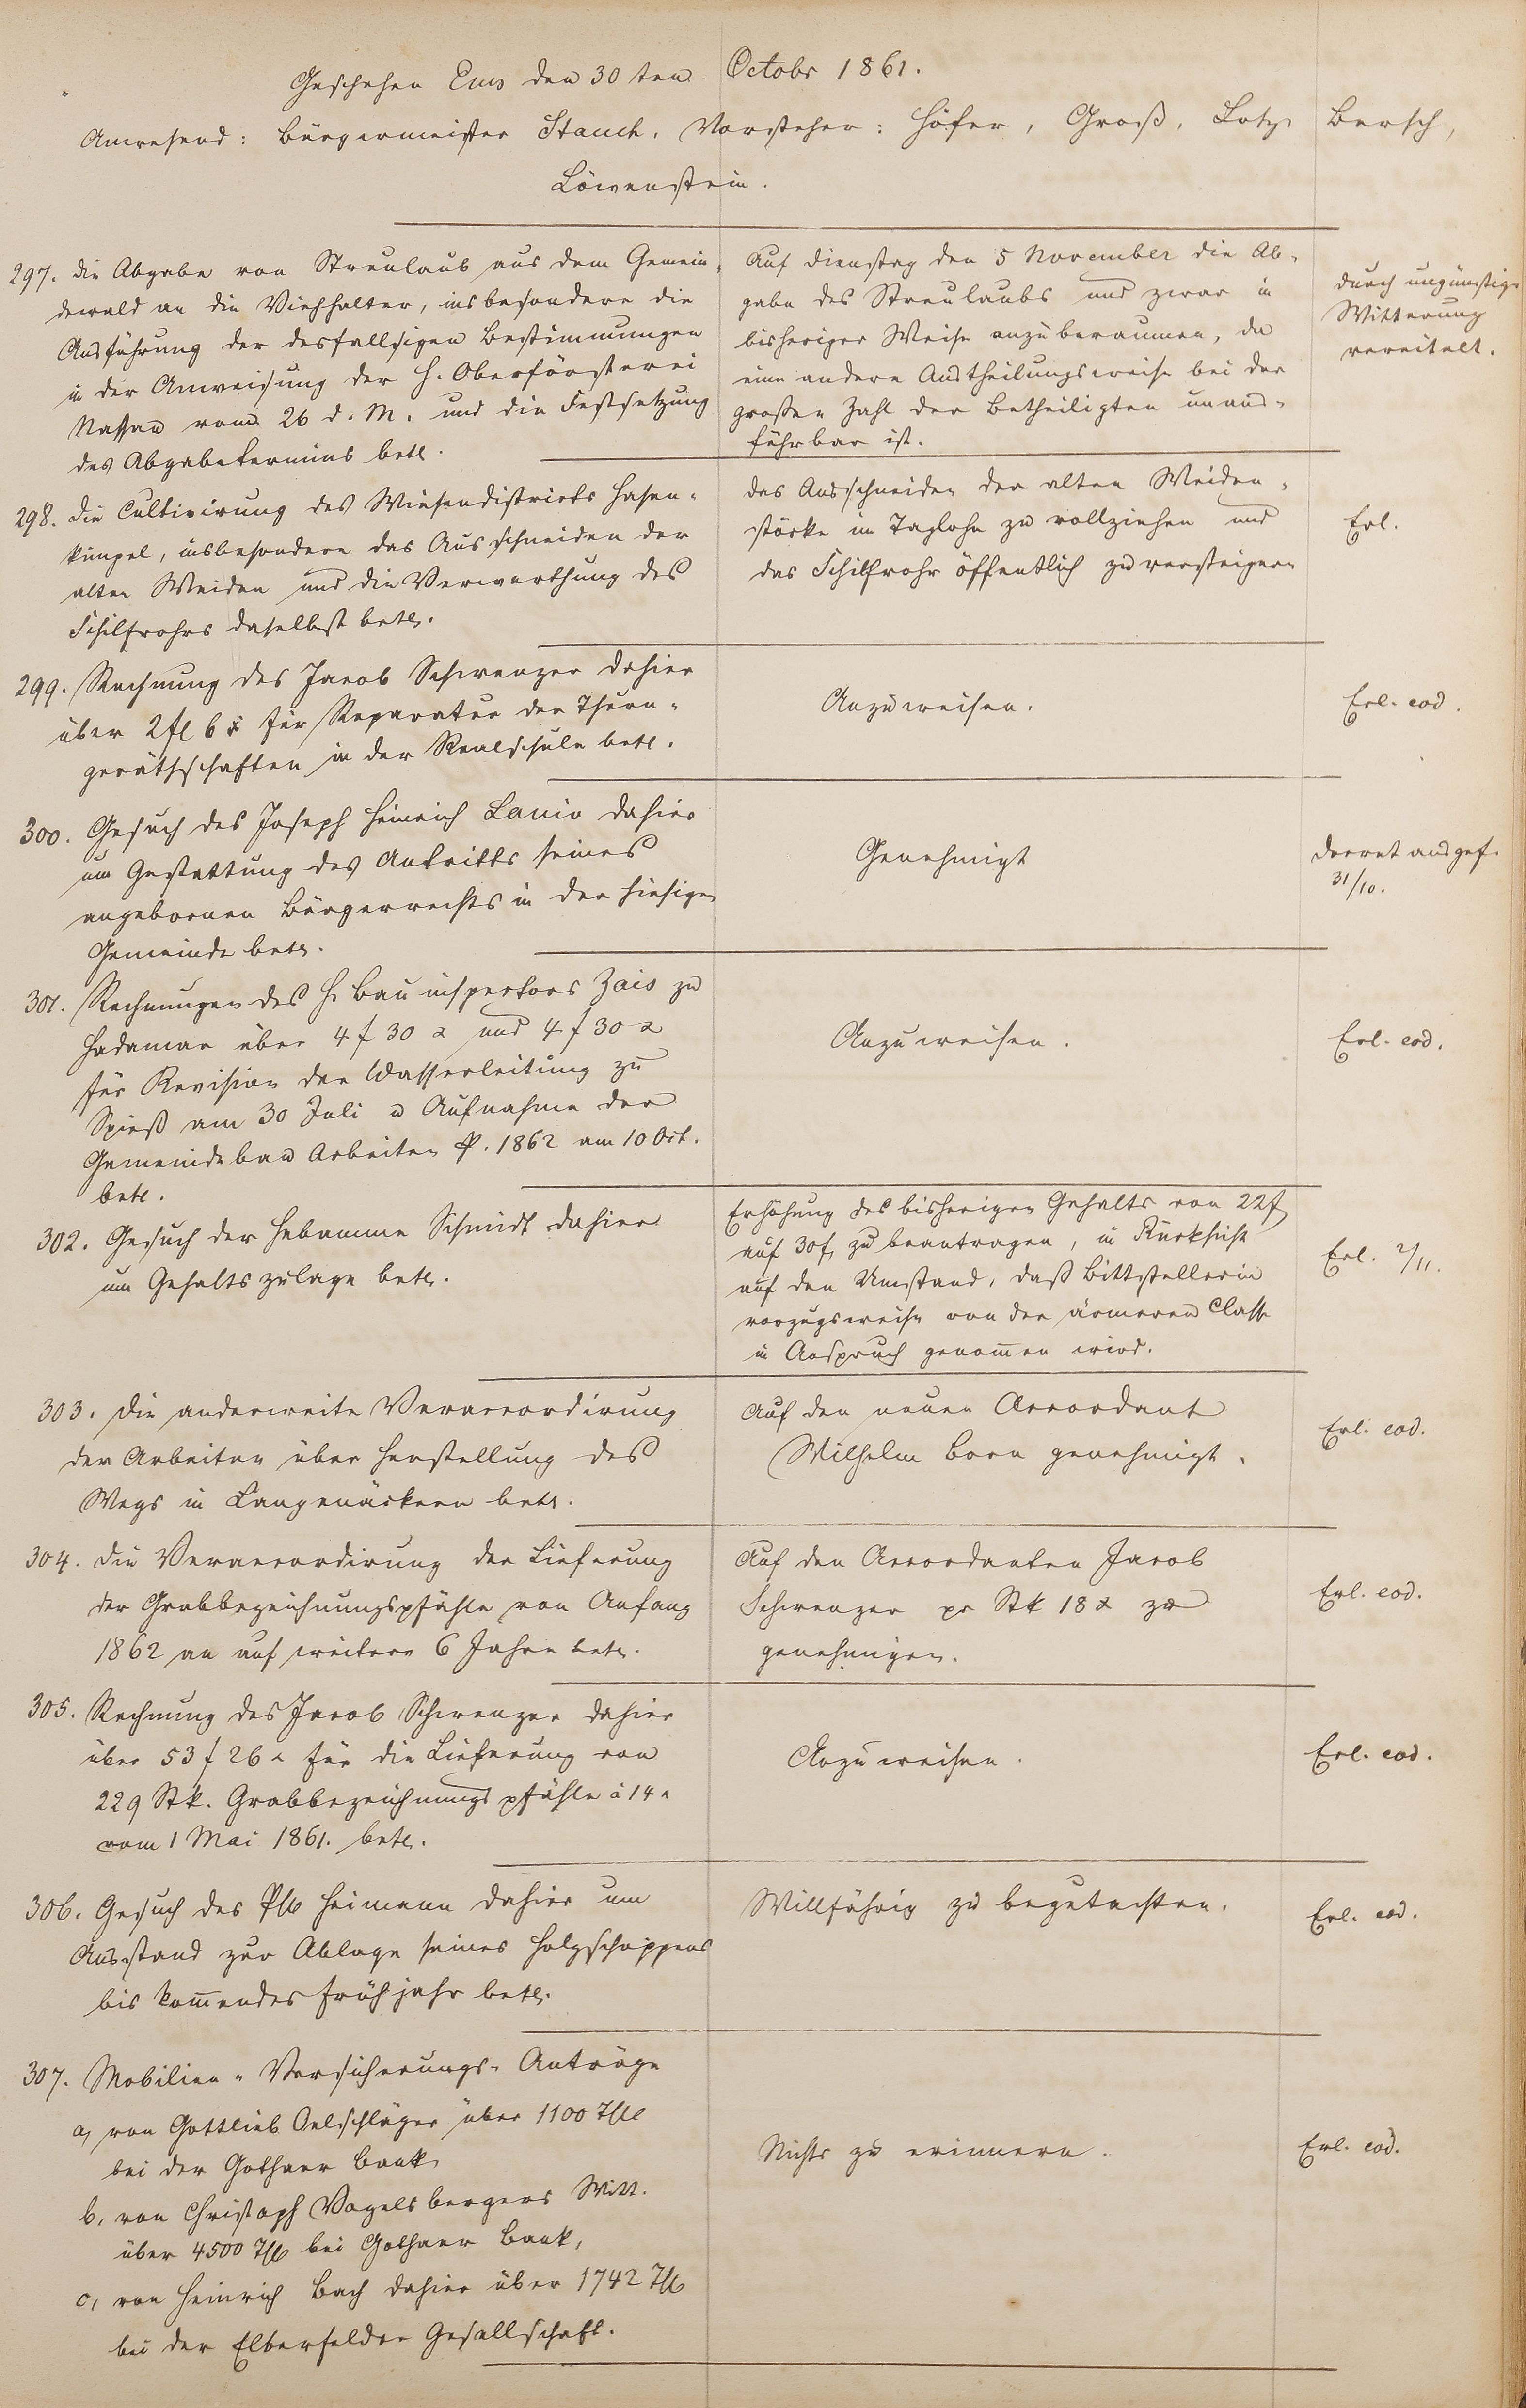 Geschehen Ems den 30ten Octobr 1861.
Anwesend: Bürgermeister Stauch, Vorsteher: Höfer, Groß, Lotz, Bersch,
Löwenstein.
297. Die Abgabe von Streulaub aus dem Gemein-
dewald an die Viehhalter, insbesondere die
Ausführung der desfallsigen Bestimmungen
in der Anweisung der H. Oberförsterei
Nassau vom 26 d. M. und die Festsetzung
des Abgabetermins betr.
Auf Dienstag den 5 November die Ab-
gabe des Streulaubs und zwar in
bisheriger Weise anzuberaumen, da
eine andere Austheilungsweise bei der
großen Zahl der Betheiligten unaus-
führbar ist.
durch ungünstige
Witterung
vereitelt.
298. Die Cultivirung des Wiesendistricts Hasen-
kümpel, insbesondere das Ausschneiden der
alten Weiden und die Verwerthung des
Schilfrohrs daselbst betr.
Das Ausschneiden der alten Weiden-
stöcke im Taglohn zu vollziehen und
das Schilfrohr öffentlich zu versteigern
Erl.
299. Rechnung des Jacob Schwenzer dahier
über 2 fl 6 x für Reparatur der Thurn-
geräthschaften in der Realschule betr.
Anzuweisen.
Erl. eod.
300. Gesuch des Joseph Heinrich Lanio dahier
um Gestattung des Antritts seines
angebornen Bürgerrechts in der hiesigen
Gemeinde betr.
Genehmigt
Decret ausgef.
31/10.
301. Rechnungen des H. Bauinspectors Zais zu
Hadamar über 4 f 30 x und 4 f 30 x
für Revision der Wasserleitung zu
Spieß am 30 Juli u Aufnahme der
Gemeindebau Arbeiten p. 1862 am 10 Oct.
betr.
Anzuweisen.
Erl. eod.
302. Gesuch der Hebamme Schmidt dahier
um Gehaltszulage betr.
Erhöhung des bisherigen Gehalts von 22 f
auf 30 f zu beantragen, in Rücksicht
auf den Umstand, daß Bittstellerin
vorzugsweise von der ärmeren Classe
in Anspruch genommen wird.
Erl. 2/11.
303. Die anderweite Veraccordirung
der Arbeiten über Herstellung des
Wegs in Langenäckern betr.
Auf den neuen Accordant
Wilhelm Born genehmigt.
Erl. eod.
304. Die Veraccordirung der Lieferung
der Grabbezeichnungspfähle von Anfang
1862 an auf weitere 6 Jahre betr.
Auf den Accordanten Jacob
Schwenzer pr Stk 18 x zu
genehmigen.
Erl. eod.
305. Rechnung des Jacob Schwenzer dahier
über 53 f 26 x für die Lieferung von
229 Stk. Grabbezeichnungspfähle à 14 x
vom 1 Mai 1861. betr.
Anzuweisen.
Erl. eod.
306. Gesuch des Heimann dahier um
Ausstand zur Ablage seines Holzschoppens
bis kommendes Frühjahr betr.
Willfährig zu begutachten.
Erl. eod.
307. Mobilien-Versicherungs-Anträge
a, von Gottlieb Oelschläger über 1100 Thl
bei der Gothaer Bank
b, von Christoph Vogelsbergers Witt.
über 4500 Thl bei Gothaer Bank,
c, von Heinrich Bach dahier über 1742 Thl
bei der Elberfelder Gesellschaft.
Nichts zu erinnern.
Erl. eod.